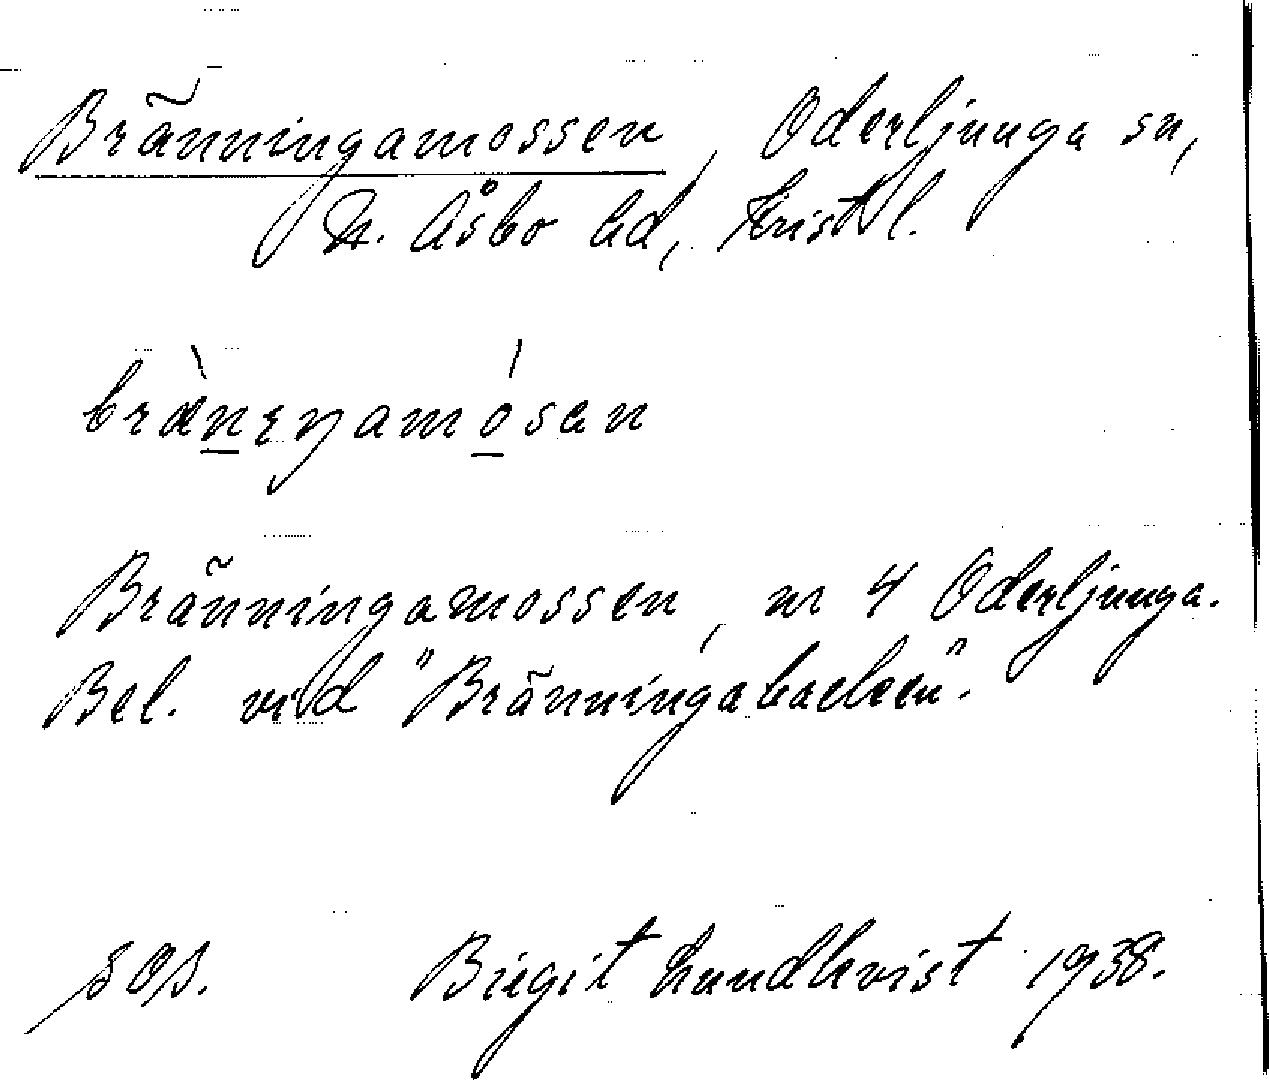 Bränningamossen, Oderljunga sn,
N. Åsbo hd, Krist. l.
brænıŋamósen
Bränningamossen, nr 4 Oderljunga.
Bel. vid "Bränningabacken".
sos. Birgit Lundkvist 1938.